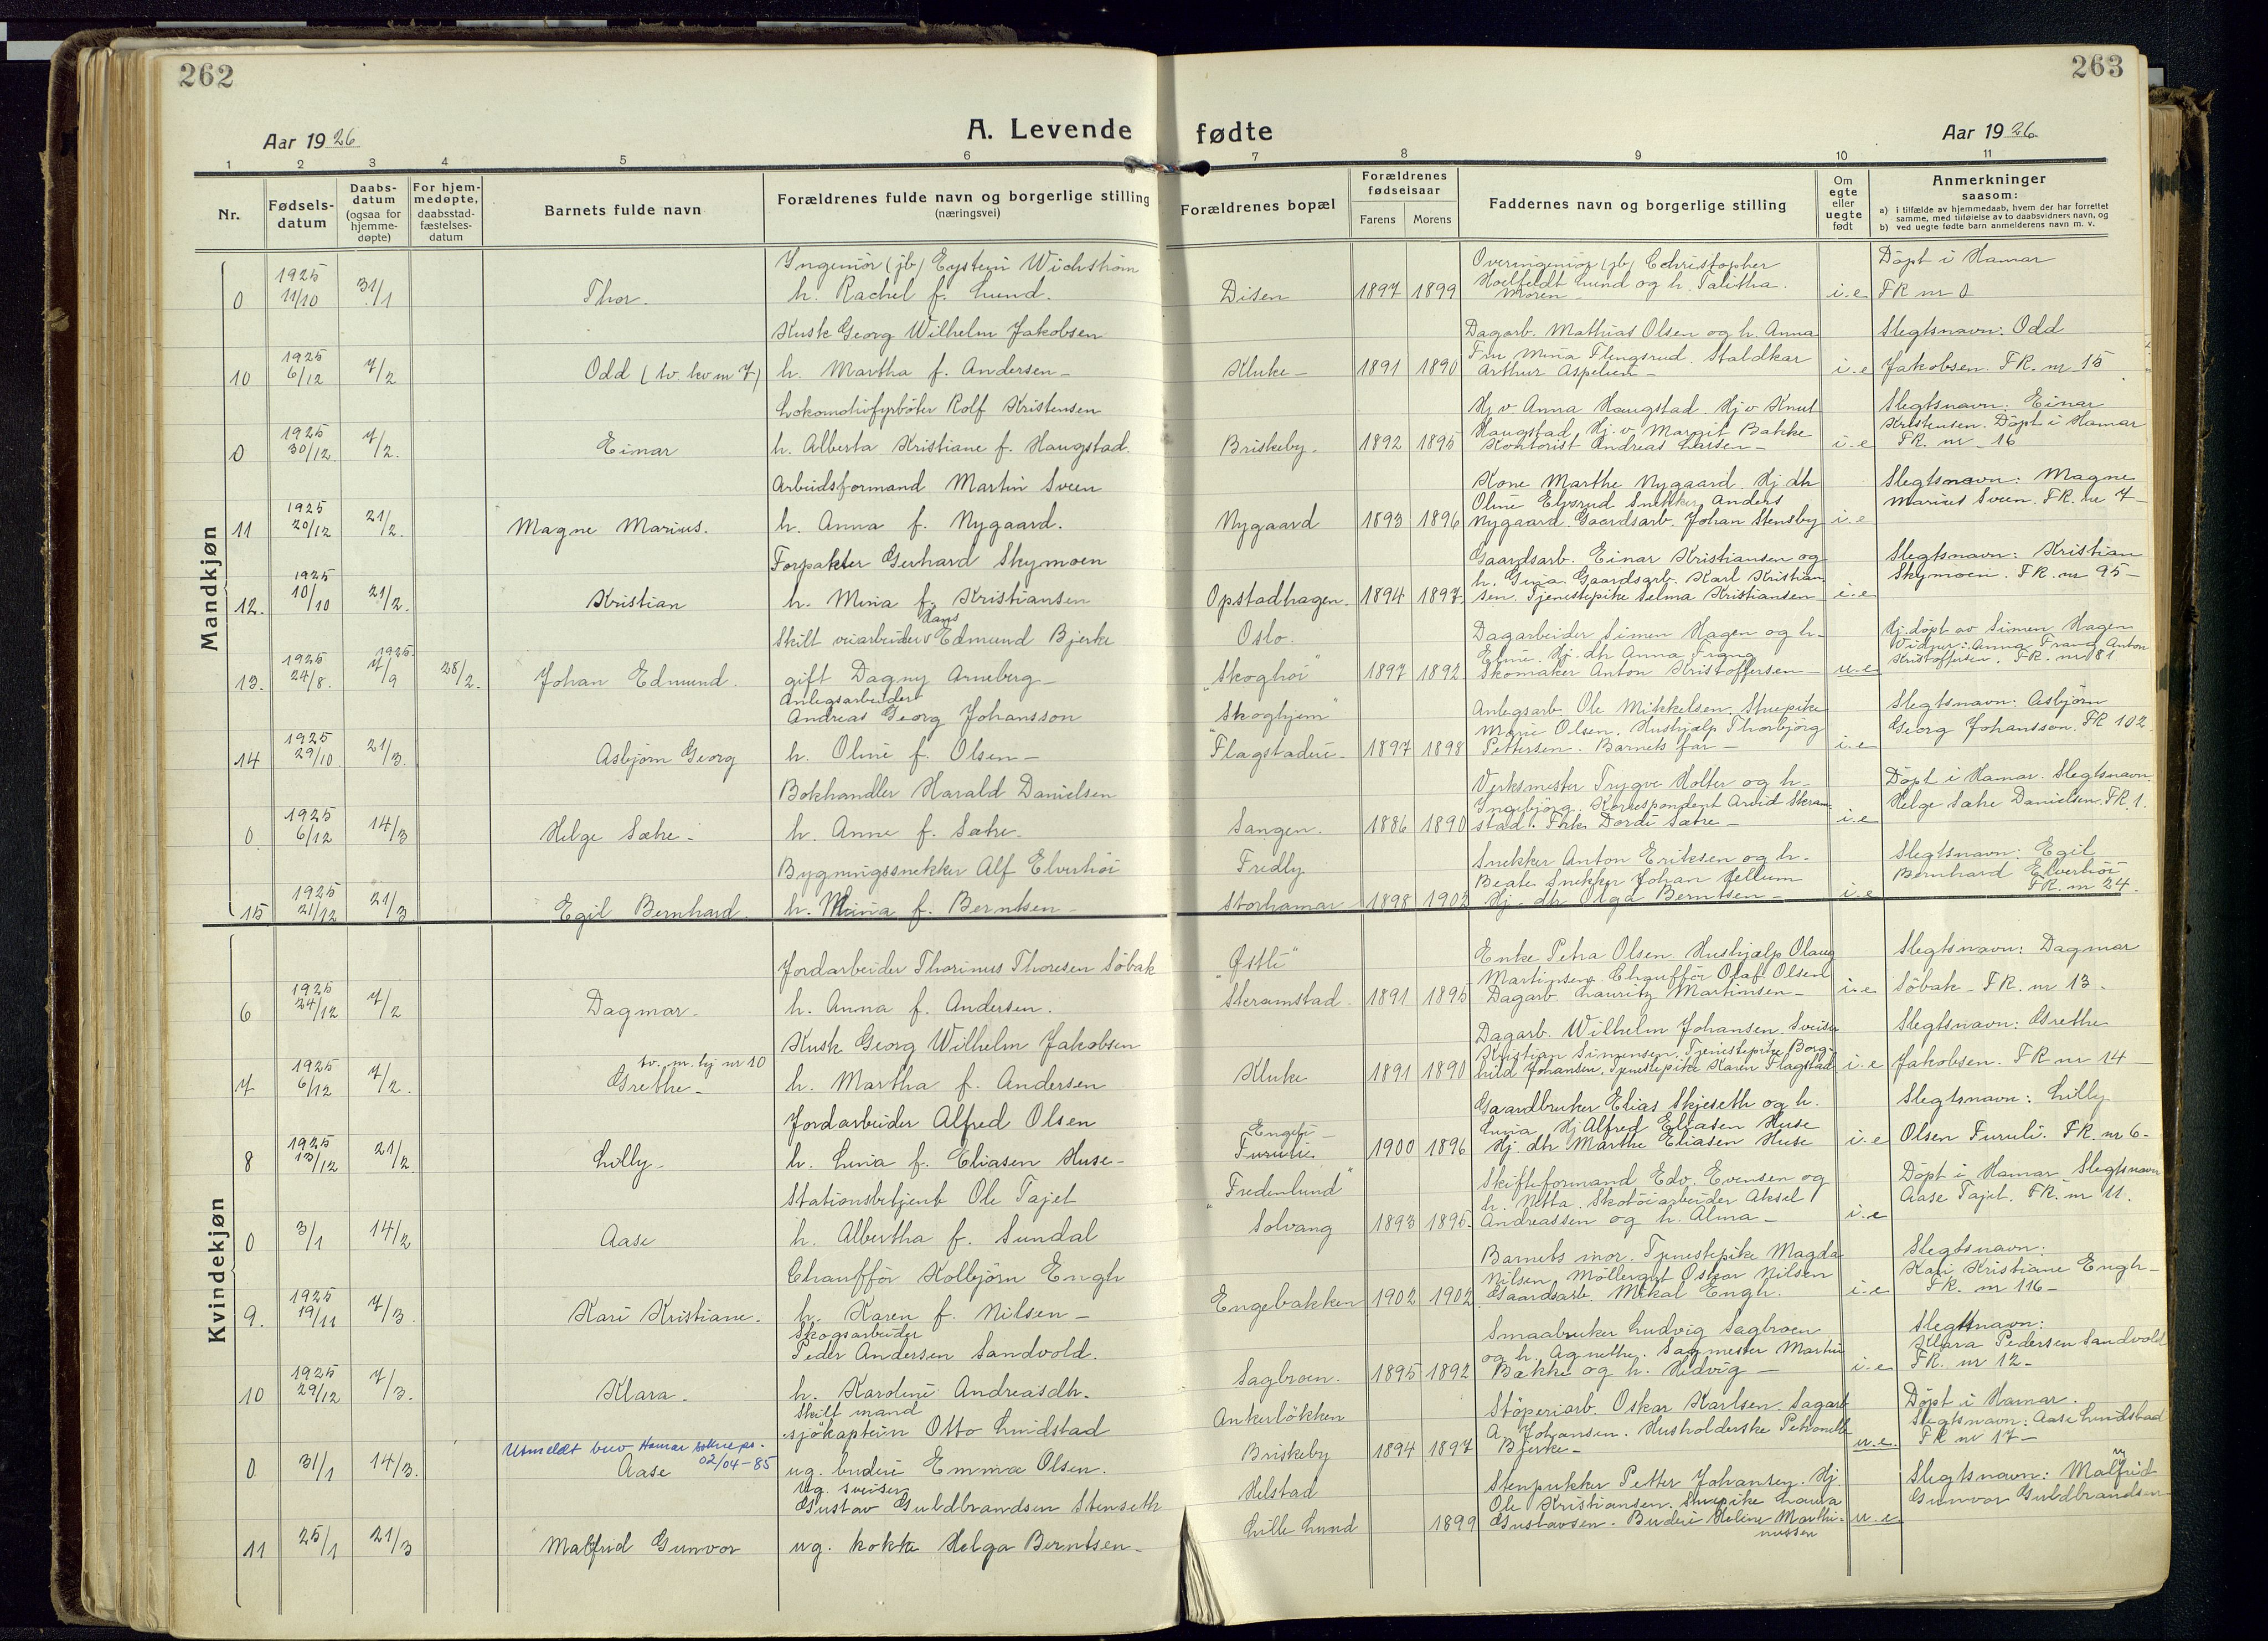 262
Aar 1926
A. Levende
1 2 3 4 5 6
Nr.
Fødsels-
datum
Daabs-
datum
(ogsaa for
hjemme-
døpte)
For hjem-
medøpte,
daabsstad-
fæstelses-
datum
Barnets fulde navn
Forældrenes fulde navn og borgerlige stilling
(næringsvei)
Mandkjøn
Ingeniør (jb) Eystein Wichstrøm
0 1925 11/10 31/1 Thor. h. Rachel f. Lund.
Kusk Georg Wilhelm Jakobsen
10 1925 6/12 7/2 Odd (tv. kv nr 7) h. Martha f. Andersen –
Lokomotivfyrbøter Rolf Kristensen
0 1925 30/12 7/2. Einar h. Alberta Kristiane f. Haugstad.
Arbeidsformand Martin Sveen
11 1925 20/12 21/2. Magne Marius. h. Anna f. Nygaard.
Forpakter Gerhard Skymoen
12. 1925 10/10 21/2. Kristian h. Mina f. Kristiansen
Skilt veiarbeider Hans Edmund Bjerke
13. 1925 24/8. 1925 7/9 28/2. Johan Edmund. gift Dagny Arneberg –
Anlegsarbeider
Andreas Georg Johansson
14 1925 29/10 21/3. Asbjørn Georg h. Oline f. Olsen –
Bokhandler Harald Danielsen
0 1925 6/12 14/3 Helge Sæhre – h. Anne f. Sæhre.
Bygningssnekker Alf Elverhøi
15 1925 21/12 21/3 Egil Bernhard. h. Mina f. Berntsen –
Kvindekjøn
Jordarbeider Thorinus Thoresen Søbak
6 1925 24/12 7/2 Dagmar. h. Anna f. Andersen.
Kusk Georg Wilhelm Jakobsen
tv. m. kj nr 10
7 1925 6/12 7/2. Grethe – h. Martha f. Andersen
Jordarbeider Alfred Olsen
8 1925 13/12 21/2 Lilly – h. Lina f. Eliasen Huse –
Stationsbetjent Ole Tajet
0 3/1 14/2 Aase h. Albertha f. Sundal
Chauffør Kolbjørn Engh
9. 1925 19/11 7/3. Kari Kristiane. h. Karen f. Nilsen –
Skogsarbeider
Peder Andersen Sandvold.
10 1925 29/12 7/3. Klara. h. Karoline Andreasdh.
Skilt mand
sjøkaptein Otto Lindstad
Utmeldt brev Hamar
02/04-85
0 31/1 14/3. Aase ug. budeie Emma Olsen.
Ug. sveiser
Gustav Guldbrandsen Stenseth
11 25/1 21/3 Malfrid Gunvor ug. kokke Helga Berntsen –
263
fødte
Aar 1926
7 8 9 10 11
Forældrenes bopæl
Forældrenes
fødselsaar
Farens Morens
Faddernes navn og borgerlige stilling
Om
egte
eller
uegte
født
Anmerkninger
saasom:
a) i tilfælde av hjemmedaab, hvem der har forrettet
samme, med tilføielse av to daabsvidners navn, og
b) ved uegte fødte barn anmelderens navn m. v.
Overingeniør (jb) Christopher
Hoelfeldt Lund og h. Talitha.
Disen 1897 1899 Moren – i.e
Døpt i Hamar
FR nr 0
Dagarb. Mathias Olsen og h. Anna
Fru Mina Flengsrud. Staldkar
Kluke – 1891 1890 Arthur Aspelien – i.e
Slegtsnavn: Odd
Jakobsen. FR. nr 15
Hj v Anna Haugstad. Hj v Knut
Haugstad. Hj. v. Margit Bakke
Briskeby. 1892 1895 Kontorist Andreas Larsen – i.e
Slegtsnavn: Einar
Kristensen. Døpt i Hamar
FR. nr 16
Kone Marthe Nygaard. Hj. dh
Oline Elvsrud Snekker Anders
Nygaard 1893 1896 Nygaard. Gaardsarb. Johan Stensby i.e
Slegtsnavn: Magne
Marius Sveen. FR. nr 7 –
Gaardsarb. Einar Kristiansen og
h. Gina. Gaardsarb. Karl Kristian
Opstadhagen. 1894 1897 sen. Tjenestepike Selma Kristiansen i.e
Slegtsnavn: Kristian
Skymoen. FR. nr 95 –
Oslo.
Dagarbeider Simen Hagen og h.
Eline. Hj. dh Anna Frang
"Skoghøi" 1897 1892 Skomaker Anton Kristoffersen – u.e
Hj. døpt av Simen Hagen
Vidner: Anna Frang Anton
Kristoffersen. FR. nr 81
Skoghjem"
Anlegsarb. Ole Mikkelsen. Stuepike
Marie Olsen. Hushjælp Thorbjørg
"Flagstadeie – 1897 1898 Pettersen. Barnets far – i.e
Slegtsnavn: Asbjørn
Georg Johansson. FR 102
Verksmester Trygve Holter og h.
Ingebjørg. Korrespondent Arvid Skram
Sangen. 1886 1890 stad. Frk. Dordi Sæhre – i.e
Døpt i Hamar. Slegtsnavn:
Helge Sæhre Danielsen. FR. 1.
Fredly
Snekker Anton Eriksen og h.
Beate. Snekker Johan Jellum
Storhamar 1898 1902 Hj. dh Olga Berntsen – i.e
Slegtsnavn: Egil
Bernhard Elverhøi
FR. nr 24.
"Østli"
Enke Petra Olsen. Hushjælp Olaug
Martinsen. Chauffør Olaf Olsen
Skramstad. 1891 1895 Dagarb. Lauritz Martinsen – i.e
Slegtsnavn: Dagmar
Søbak – FR. nr 13.
Dagarb. Wilhelm Johansen. Sveiser
Kristian Simensen. Tjenestepike Borg-
Kluke 1891 1890 hild Johansen. Tjenestepike Karen Flagstad i.e
Slegtsnavn: Grethe
Jakobsen. FR nr 14 –
Engeli –
Gaardbruker Elias Skjeseth og h.
Lina, Hj Alfred Eliasen Huse
Furuli. 1900 1896 Hj. dh Marthe Eliasen Huse i.e
Slegtsnavn: Lilly
Olsen Furuli. FR. nr 6 –
"Fredenlund"
Skifteformand Edv. Evensen og
h. Netta. Skotøiarbeider Aksel
Solvang 1893 1895. Andreassen og h. Alma – i.e
Døpt i Hamar Slegtsnavn
Aase Tajet. FR. nr 11.
Barnets mor. Tjenestepike Magda
Nilsen, Møllergut Oskar Nilsen
Engebakken 1902 1902 Gaardsarb. Mikal Engh. i.e
Slegtsnavn:
Kari Kristiane Engh –
FR. nr 116 –
Smaabruker Ludvig Sagbroen
og h. Agnethe. Sagmester Martin
Sagbroen. 1895 1892 Bakke og h. Hedvig – i.e
Slegtsnavn:
Klara Pedersen Sandvold
FR. nr 12 –
Ankerløkken
Støperiarb. Oskar Karlsen. Sagarb
A Johansen. Husholderske Petronelle
Briskeby 1894 1897 Bjerke – u.e.
Døpt i Hamar.
Slegtsnavn: Aase Lindstad
FR nr 17 –
Helstad
Stenpukker Petter Johansen. Hj.
Ole Kristiansen. Stuepike Laura
Lille Lund 1899 Gustavsen. Budeie Helene Marthi-
nussen u.e
Slegtsnavn: Malfrid
Gunvor Guldbrandsen